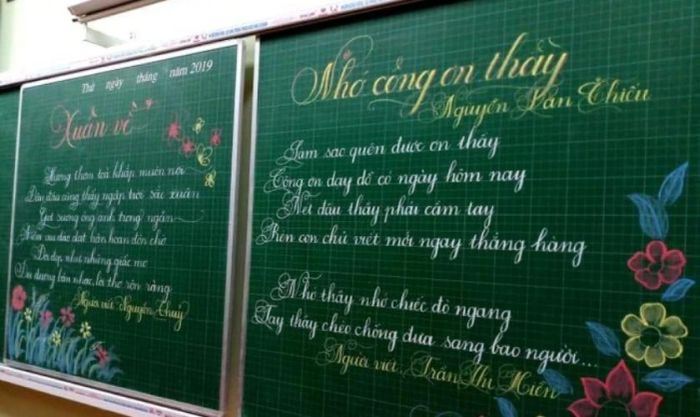 Thứ ngày tháng năm 2019
Xuân về
Hương thơm toả khắp muôn nơi
Đâu đâu cũng thấy ngập trời sắc xuân
Giọt sương óng ánh trong ngần
Niềm vui dào dạt hân hoan đón chờ
Đời đẹp như những giấc mơ
Du dương bản nhạc, lời thơ rộn ràng
Người viết: Nguyễn Thuỷ
Nhớ công ơn thầy
Nguyễn Văn Thiều
Làm sao quên được ơn thầy
Công ơn dạy dỗ có ngày hôm nay
Nét đậu thầy phải cầm tay
Rèn con chữ viết mới ngay thẳng hàng
Nhớ thầy nhớ chiếc đò ngang
Tay thầy chèo chống đưa sang bao người...
Người viết: Trần Thị Hiền